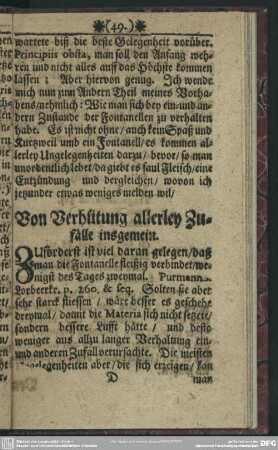 *(49.)*
wartete biß die beste Gelegenheit vorüber.
Principiis obsta, man soll den Anfang weh-
ren und nicht alles auff das Höchste kommen
lassen; Aber hiervon genug. Ich wende
mich nun zum Andern Theil meines Vorha-
bens/nehmlich: Wie man sich bey ein-und an-
dern Zustande der Fontanellen zu verhalten
habe. Es ist nicht ohne/ auch kein Spaß und
Kurtzweil umb ein Fontanell/ es kommen al-
lerley Ungelegenheiten darzu/ bevor/ so man
unordentlich lebet/ da giebt es faul Fleisch/ eine
Entzündung und dergleichen/ wovon ich
jetzunder etwas weniges melden wil/
Von Verhütung allerley Zu-
fälle insgemein.
Zuförderst ist viel daran gelegen/ daß
man die Fontanelle fleißig verbindet/ we-
nigst des Tages zweymal. Purmann.
Lorbeerkr. p. 260. & seq. Solten sie aber
sehr starck fliessen/ wäre besser es geschehe
dreymal/ damit die Materia sich nicht setzete/
sondern bessere Lufft hätte/ und desto
weniger aus allzu langer Verhaltung ein-
und anderen Zufall verursachte. Die meisten
Ungelegenheiten aber/ die sich erzeigen/ kan
D man